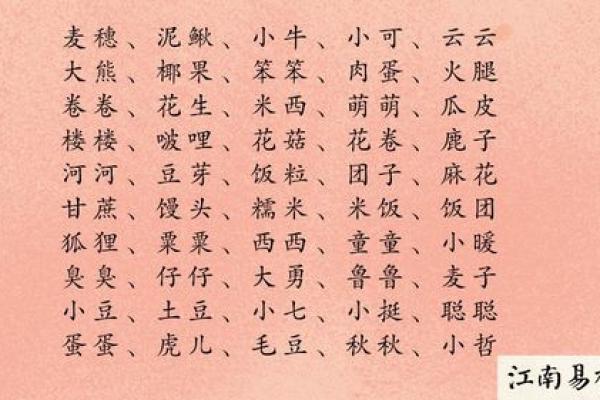 麦穗、泥鳅、小牛、小可、云云
大熊、椰果、笨笨、肉蛋、火腿
卷卷、花生、米西、萌萌、瓜皮
楼楼、啵哩、花菇、花卷、鹿子
河河、豆芽、饭粒、团子、麻花
甘蔗、馒头、糯米、米饭、饭团
狐狸、粟粟、西西、童童、小暖
臭臭、仔仔、大勇、鲁鲁、麦子
小豆、土豆、小七、小挺、聪聪
蛋蛋、虎儿、毛豆、秋秋、小哲
江南易